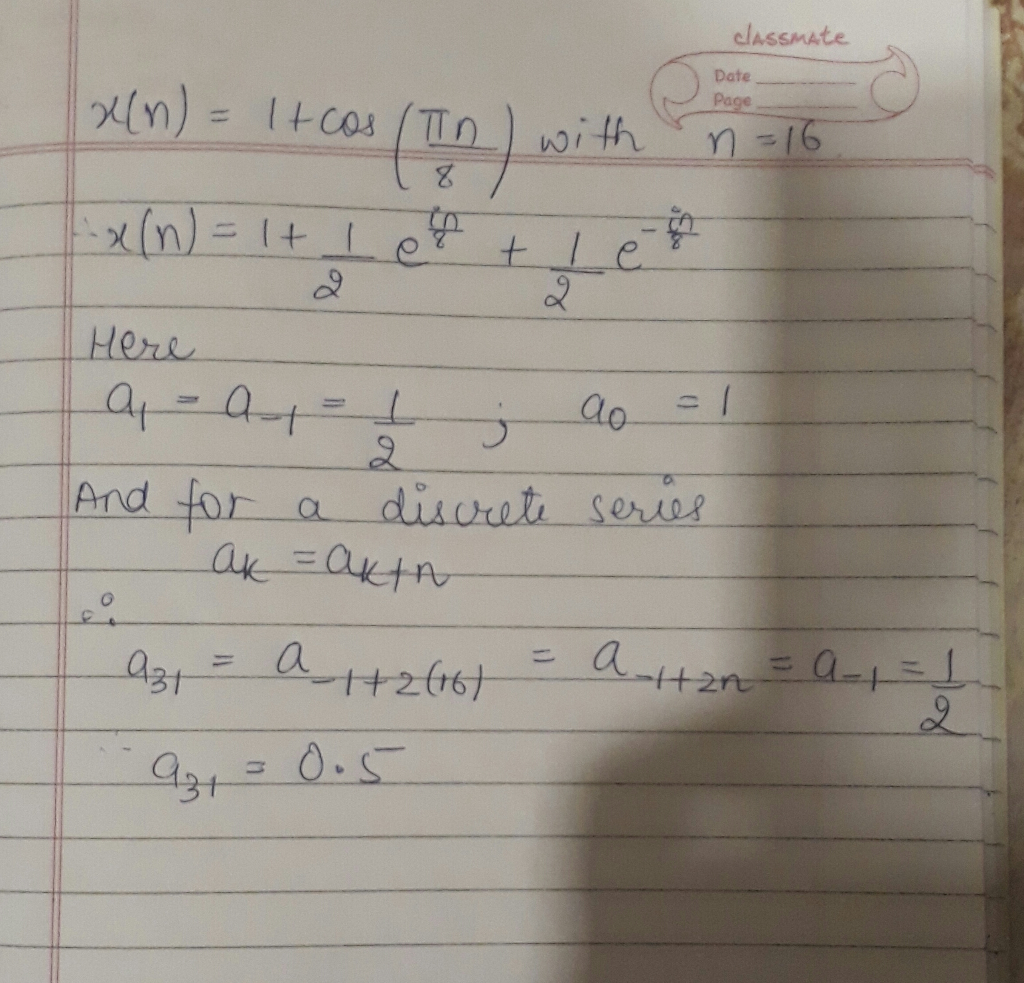 classmate
Date
Page
x(n) = 1+cos (πn/8) with n=16
∴ x(n) = 1+ 1/2 e^(jn/8) + 1/2 e^(-jn/8)
Here
a₁ = a₋₁ = 1/2 ; a₀ = 1
And for a discrete series
aₖ = aₖ₊ₙ
∴
a₃₁ = a₋₁₊₂₍₁₆₎ = a₋₁₊₂ₙ = a₋₁ = 1/2
∴ a₃₁ = 0.5